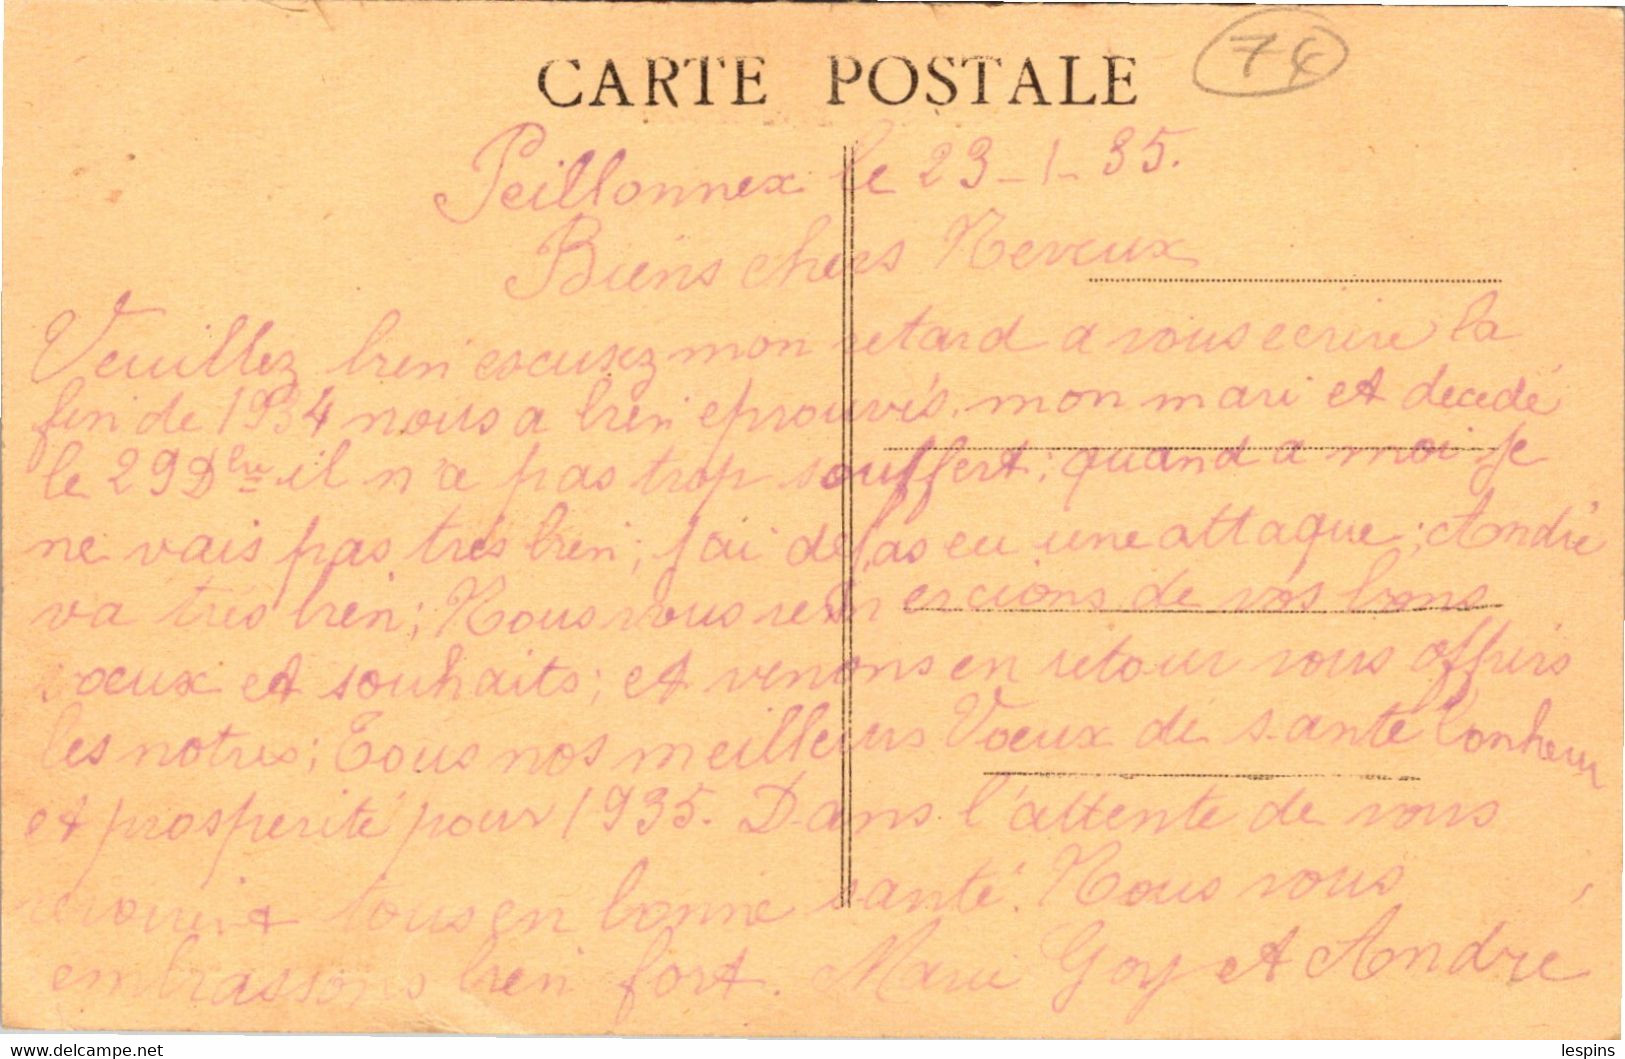 CARTE POSTALE
74
Peillonnex le 23-1-35.
Biens chers Neveux
Veuillez bien excusez mon retard a vous ecrire la
fin de 1934 nous a bien eprouvés, mon mari et decedé
le 29 Dbre il n'a pas trop souffert; quand a moi je
ne vais pas trés bien; j'ai dejas eu une attaque; André
va trés bien; Nous vous remercions de vos bons
voeux et souhaits; et venons en retour vous offrirs
les notres; Tous nos meilleurs Voeux de sante bonheur
et prosperité pour 1935. Dans l'attente de vous
tous en bonne santé. Nous vous
embrassons bien fort. Marie Goy et André
lespins
www.delcampe.net